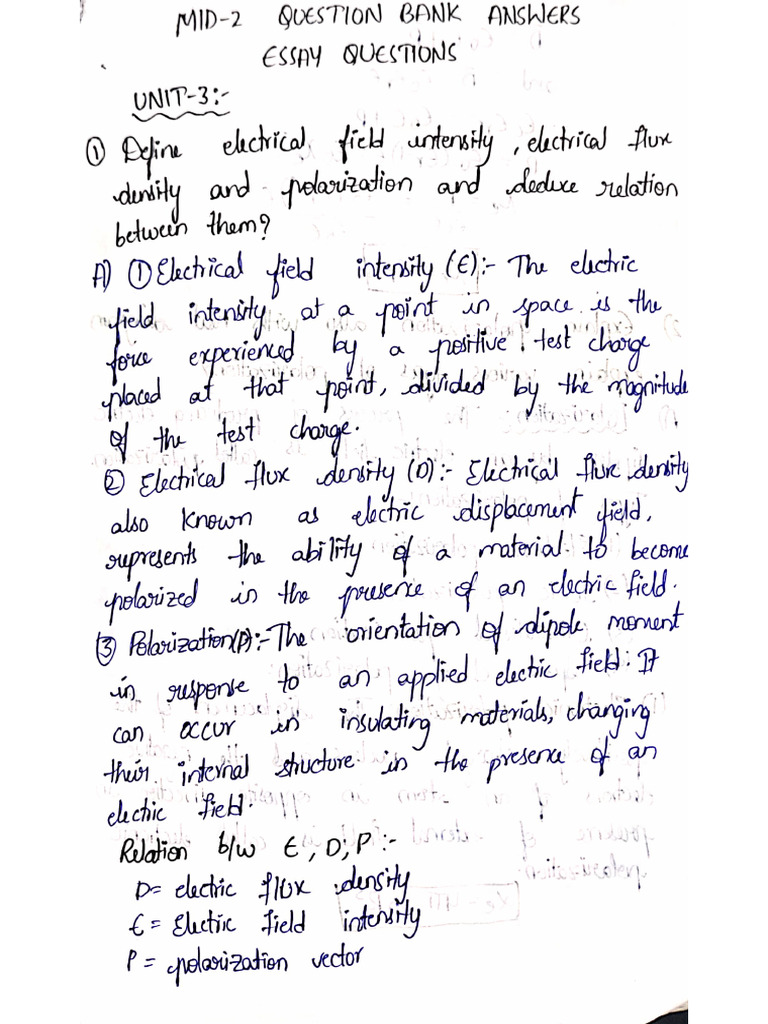 MID-2 QUESTION BANK ANSWERS
ESSAY QUESTIONS
UNIT-3:-
① Define electrical field intensity, electrical flux
density and polarization and deduce relation
between them?
A) ① Electrical field intensity (E):- The electric
field intensity at a point in space is the
force experienced by a positive test charge
placed at that point, divided by the magnitude
of the test charge.
② Electrical flux density (D):- Electrical flux density
also known as electric displacement field,
represents the ability of a material to become
polarized in the presence of an electric field.
③ Polarization(P):- The orientation of dipole moment
in response to an applied electric field. It
can occur in insulating materials, changing
their internal structure in the presence of an
electric field.
Relation b/w E, D, P :-
D= electric flux density
E = Electric field intensity
P = polarization vector